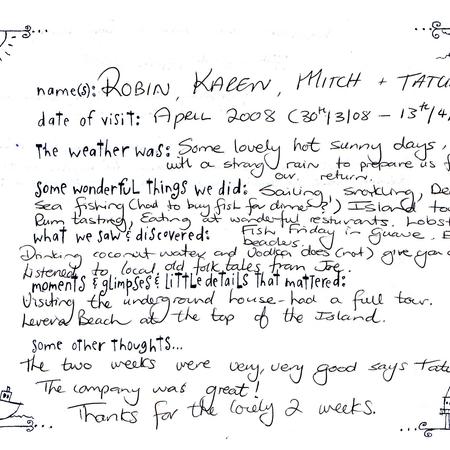 name(s): ROBIN, KAREN, MITCH + TATU
date of visit: APRIL 2008 (30th/3/08 – 13th/4/
The weather was: Some lovely hot sunny days,
with a strang rain to prepare us f
our return.
some wonderful things we did: Sailing, snorkling, De
sea fishing (had to buy fish for dinner!) Island to
Rum tasting, Eating at wonderful resturants. Lobst
what we saw & discovered: Fish Friday in Guave, E
beaches.
Drinking coconut water and Vodka does (not) give you a
Listened to local old folk tales from Joe.
moments & glimpses & little details that mattered:
Visiting the underground house - had a full tour.
Levera Beach at the top of the Island.
some other thoughts...
The two weeks were very, very good says Tatu
The company was great!
Thanks for the lovely 2 weeks.